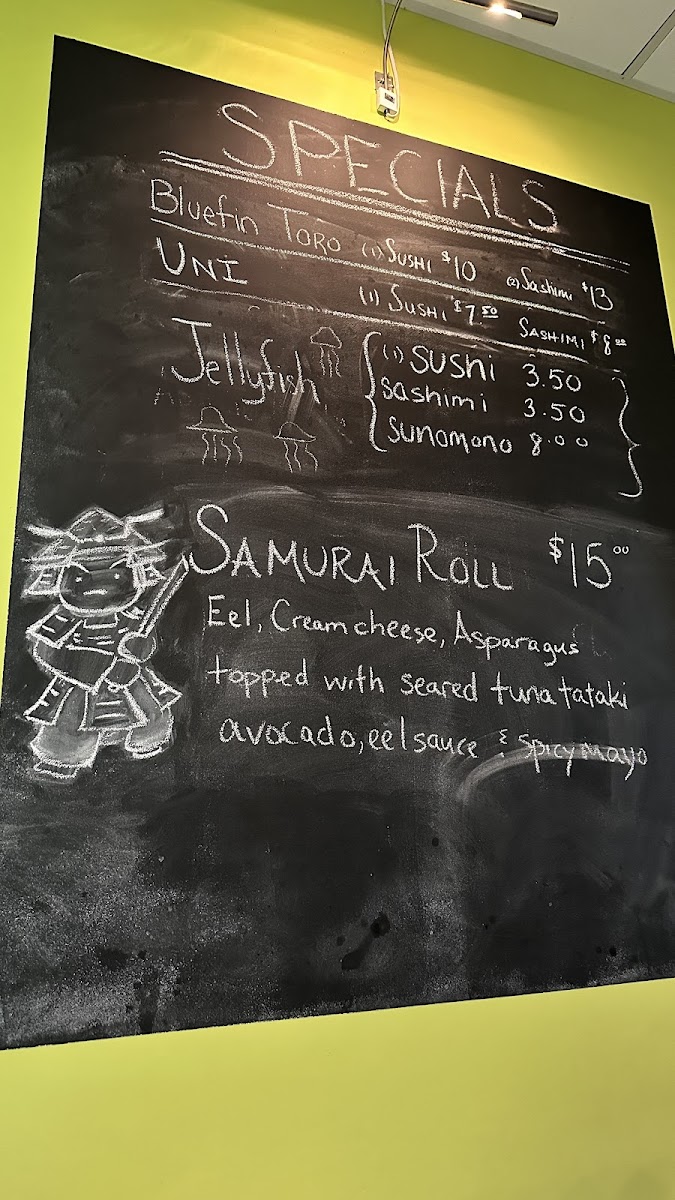 SPECIALS
Bluefin TORO (1) SUSHI $10 (2) Sashimi $13
UNI (1) SUSHI $7.50 SASHIMI $8.00
Jellyfish (1) sushi 3.50
sashimi 3.50
sunomono 8.00
SAMURAI ROLL $15.00
Eel, Cream cheese, Asparagus
topped with seared tuna tataki
avocado, eel sauce & spicy mayo